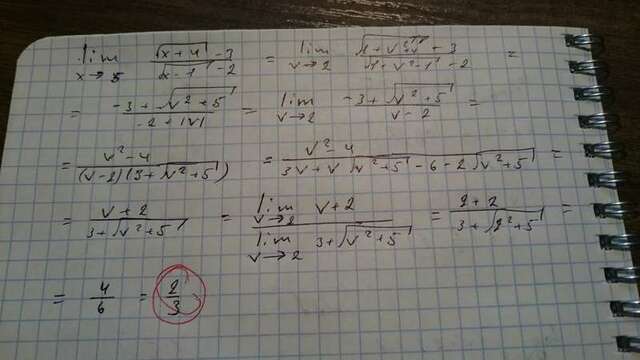 lim x→5 (√(x+4) - 3)/(√(x-1) - 2) = lim v→2 (√(1+v²+4) + 3)/(√(1+v²-1) - 2) =
= (-3+√(v²+5))/(-2+|v|) = lim v→2 (-3+√(v²+5))/(v-2) =
= (v²-4)/((v-2)(3+√(v²+5))) = (v²-4)/(3v+v√(v²+5)-6-2√(v²+5)) =
= (v+2)/(3+√(v²+5)) = (lim v→2 v+2)/(lim v→2 3+√(v²+5)) = (2+2)/(3+√(2²+5)) =
= 4/6 = 2/3